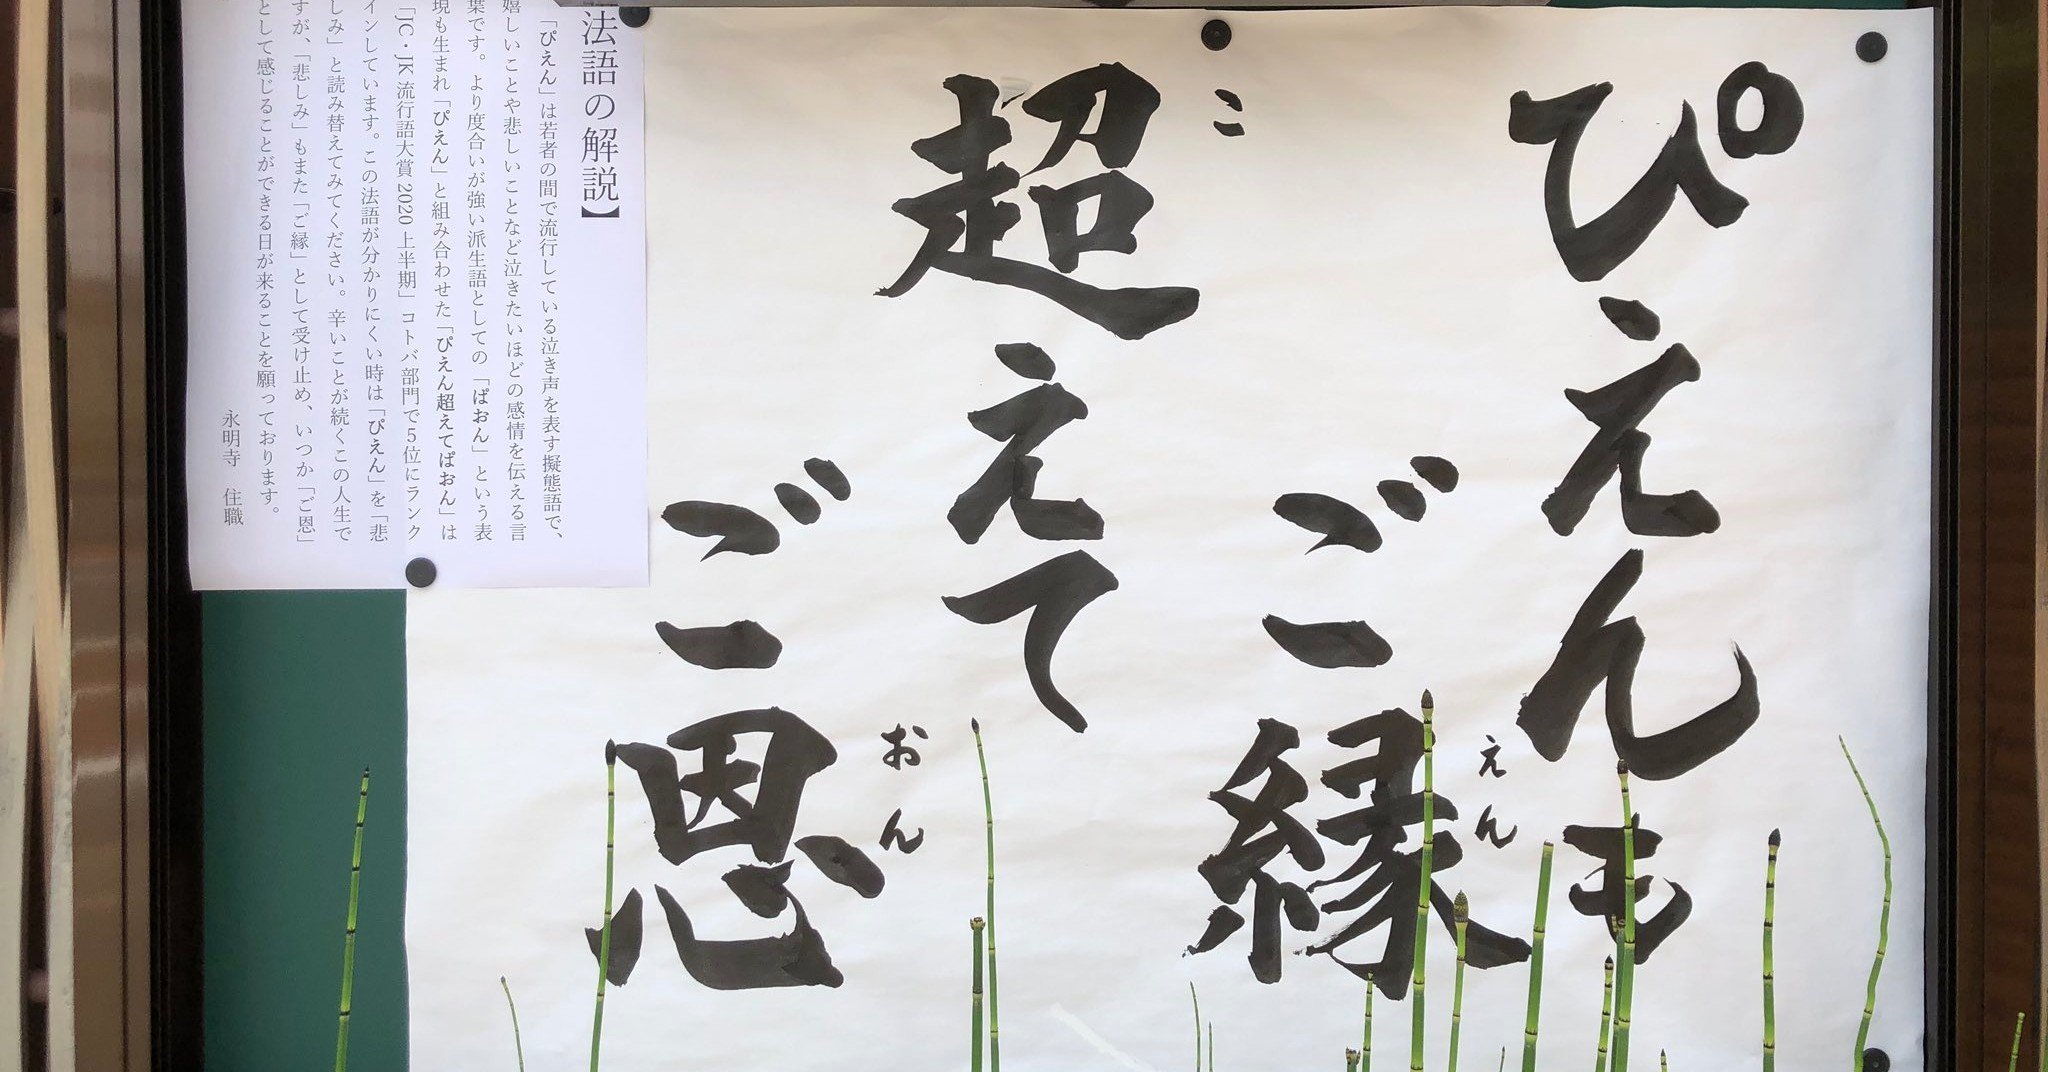 ぴえんも
ご縁
えん
超えて
こ
ご恩
おん
法語の解説】
「ぴえん」は若者の間で流行している泣き声を表す擬態語で、
嬉しいことや悲しいことなど泣きたいほどの感情を伝える言
葉です。より度合いが強い派生語としての「ぱおん」という表
現も生まれ「ぴえん」と組み合わせた「ぴえん超えてぱおん」は
「JC・JK流行語大賞2020上半期」コトバ部門で5位にランク
インしています。この法語が分かりにくい時は「ぴえん」を「悲
しみ」と読み替えてみてください。辛いことが続くこの人生で
すが、「悲しみ」もまた「ご縁」として受け止め、いつか「ご恩」
として感じることができる日が来ることを願っております。
永明寺 住職